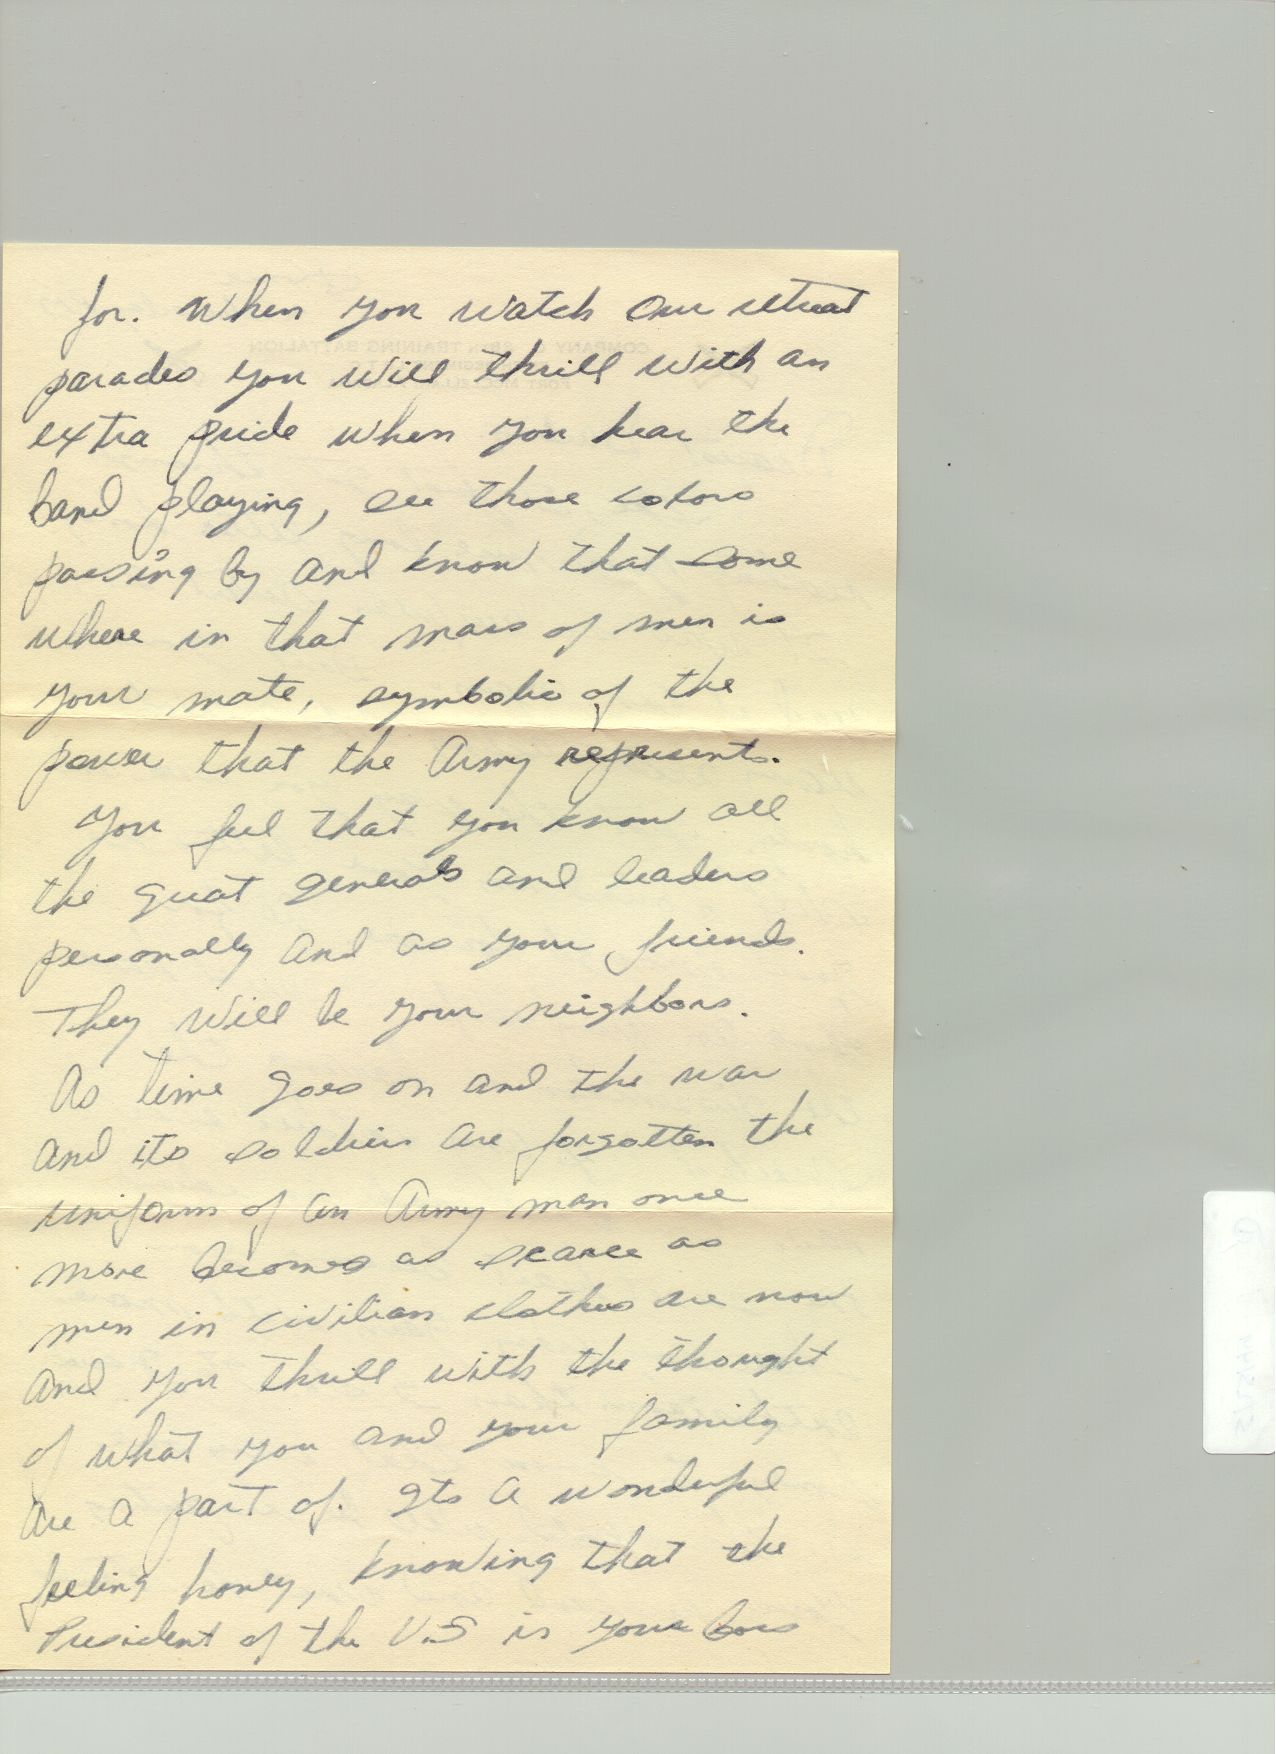 for. When you watch our retreat
parades you will thrill with an
extra pride when you hear the
band playing, see those colors
passing by and know that some
where in that mass of men is
your mate, symbolic of the
power that the Army represents.
You feel that you know all
the great generals and leaders
personally and as your friends.
They will be your neighbors.
As time goes on and the war
and its soldiers are forgotten the
uniform of an Army man once
more becomes as scarce as
men in civilian clothes are now
and you thrill with the thought
of what you and your family
are a part of. Its a wonderful
feeling honey, knowing that the
President of the U.S is your boss